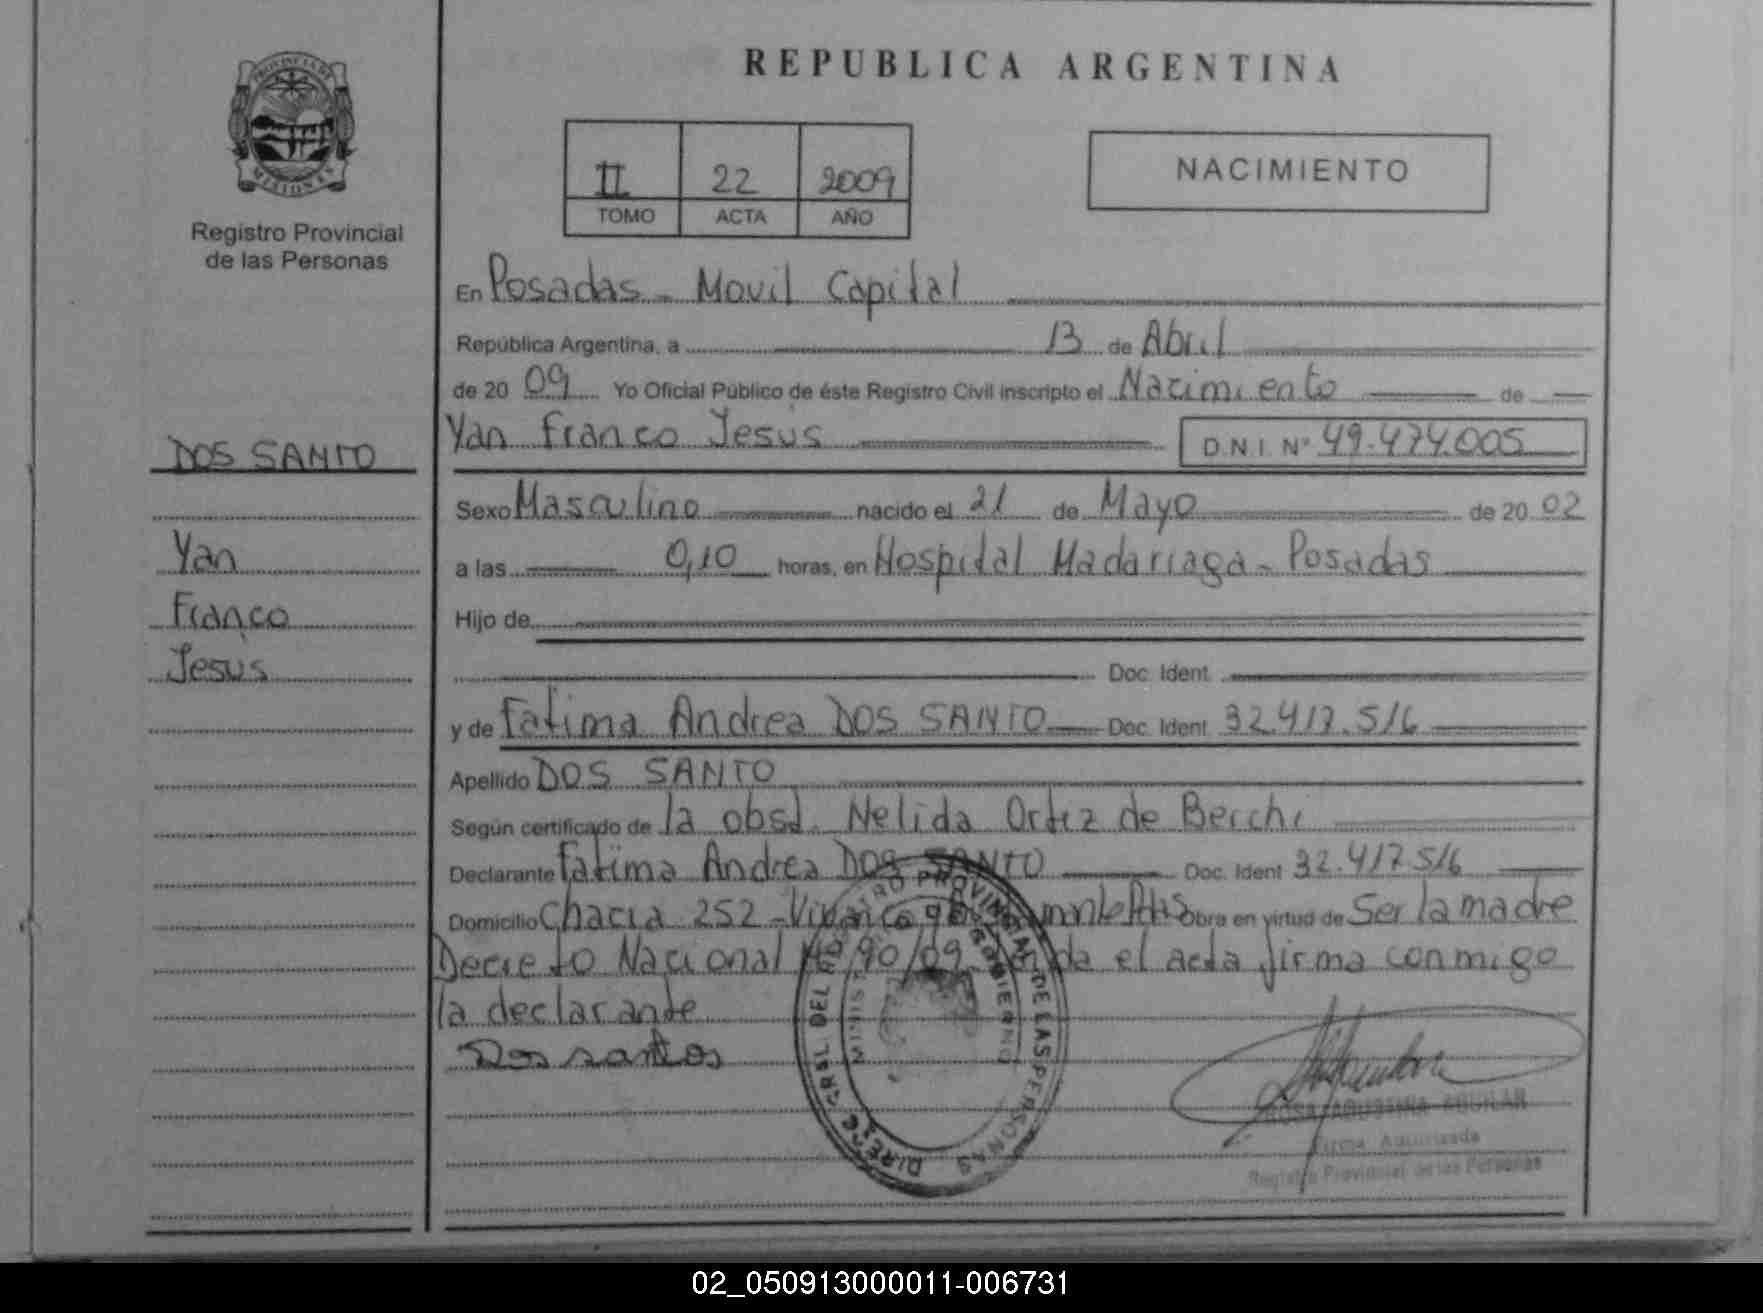 PROVINCIA DE
MISIONES
Registro Provincial
de las Personas
DOS SANTO
Yan
Franco
Jesus
REPUBLICA ARGENTINA
II 22 2009
TOMO ACTA AÑO
NACIMIENTO
En Posadas - Movil Capital
República Argentina, a 13 de Abril
de 20 09 Yo Oficial Público de éste Registro Civil inscripto el Nacimiento de
Yan Franco Jesus D.N.I. Nº 49.474.005
Sexo Masculino nacido el 21 de Mayo de 20 02
a las 0,10 horas, en Hospital Madariaga - Posadas
Hijo de
Doc. Ident.
y de Fatima Andrea DOS SANTO Doc. Ident. 32.417.516
Apellido DOS SANTO
Según certificado de la obst. Nelida Ortiz de Berchi
Declarante Fatima Andrea DOS SANTO Doc. Ident. 32.417.516
Domicilio Chacra 252 - Obra en virtud de Ser la madre
Decreto Nacional Nº 90/09. el acta firma conmigo
la declarante
Dos santos
DIREC. GRAL. DEL REGISTRO PROVINCIAL DE LAS PERSONAS
GOBIERNO
ROSA AGUSTINA AGUILAR
Firma Autorizada
Registro Provincial de las Personas
02_050913000011-006731